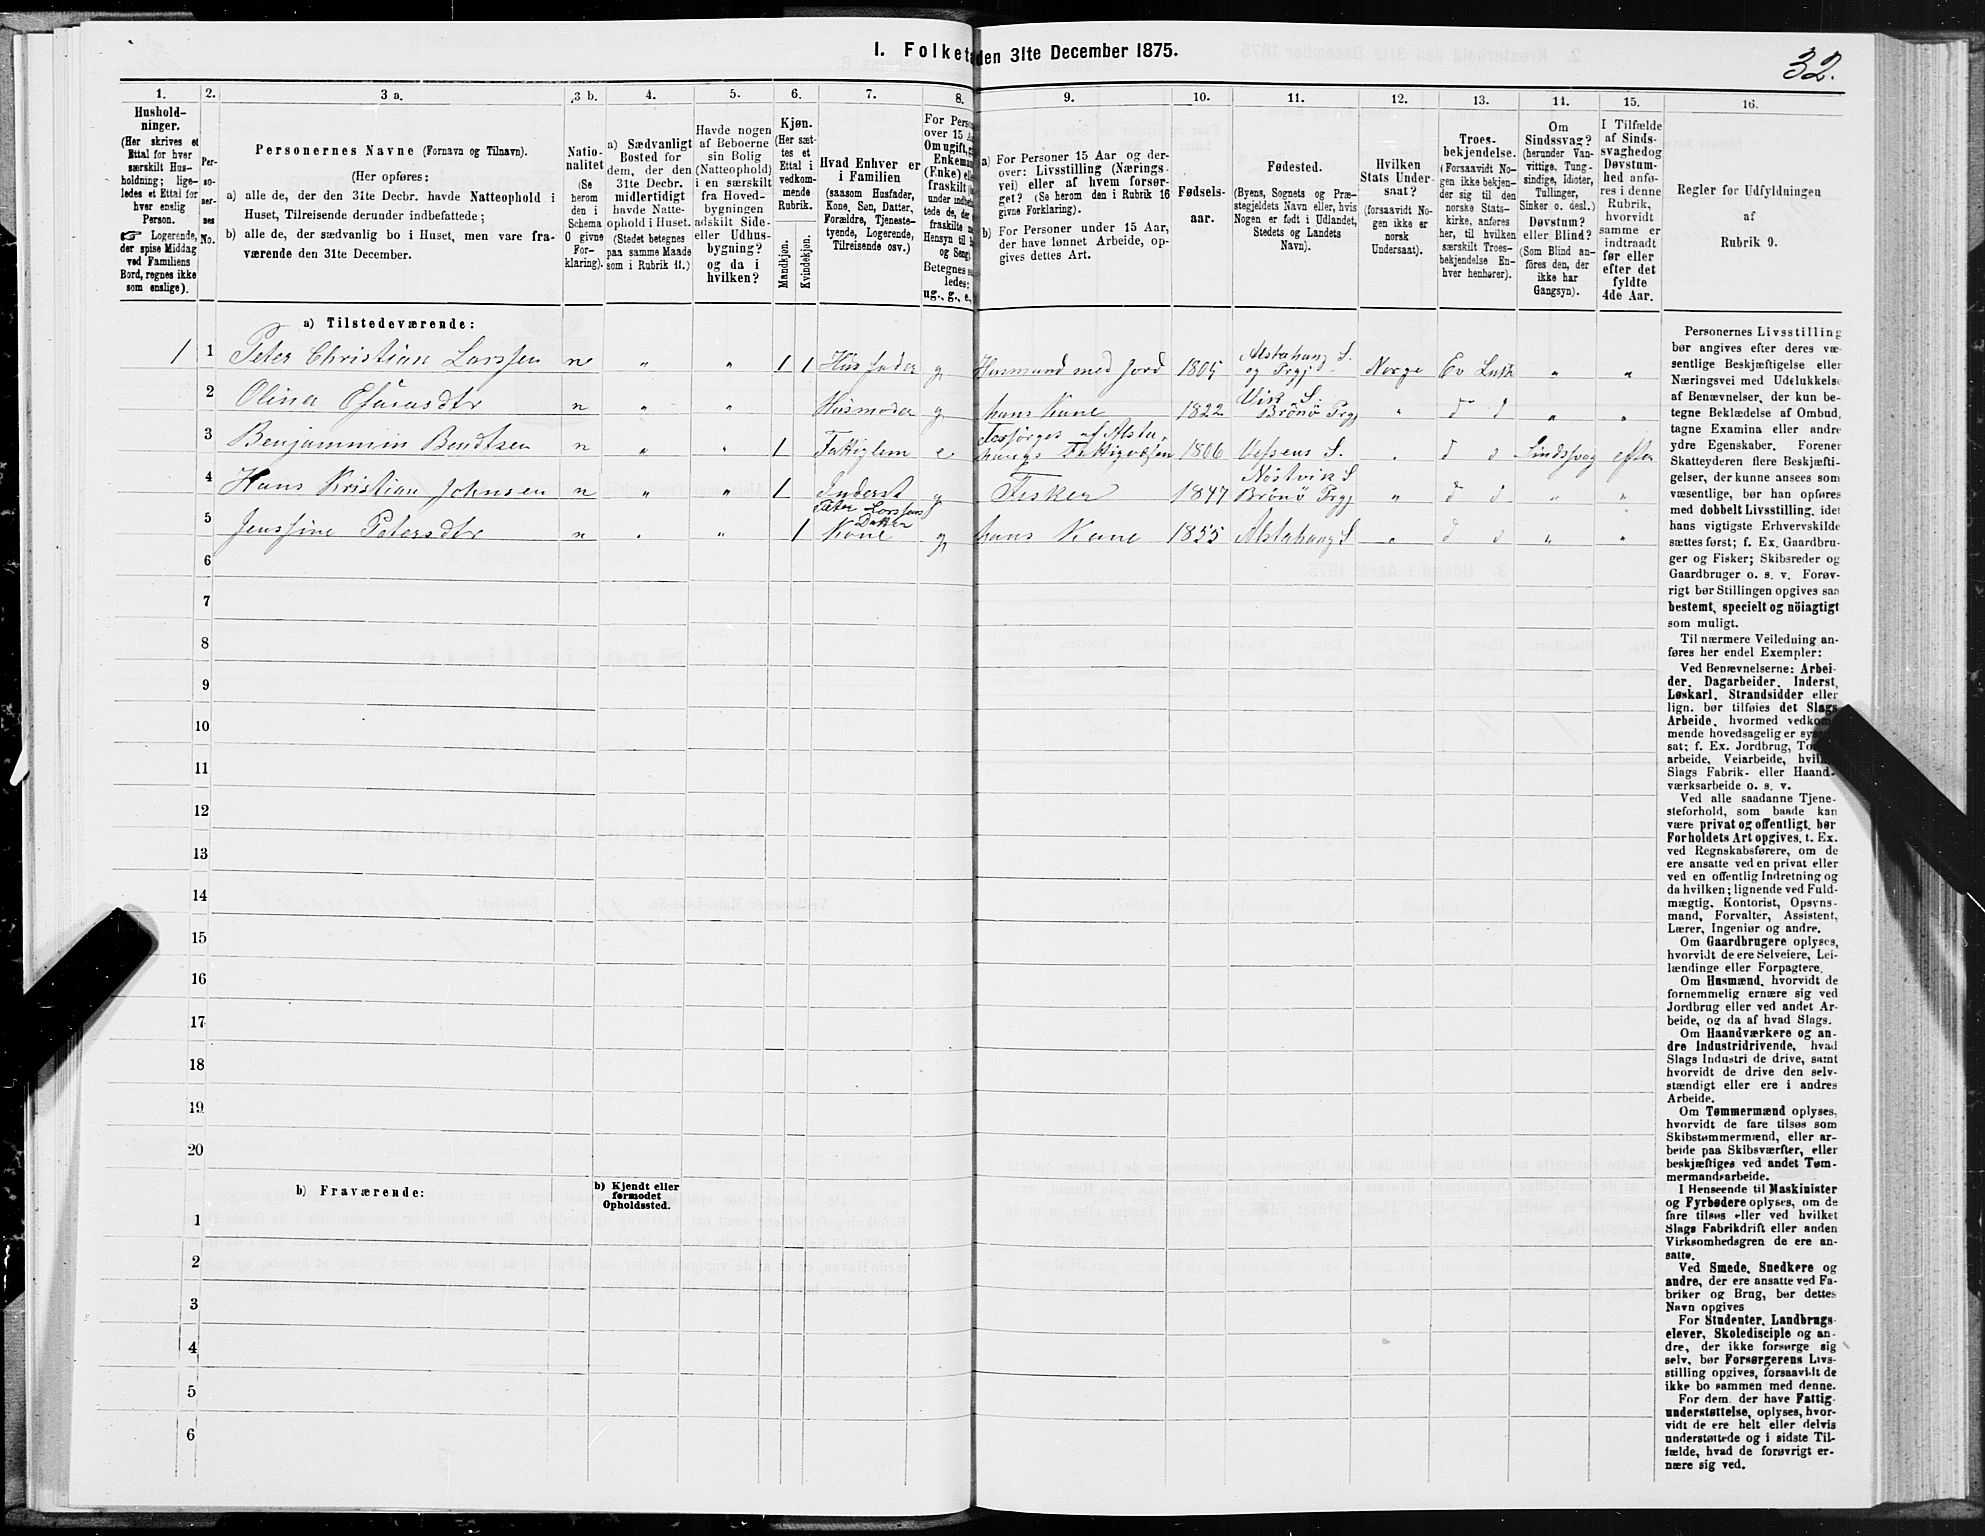 I. Folketæ
den 31te December 1875.
32.
1.
2.
3 a.
3 b.
4.
5.
6.
7.
8.
9.
10.
11.
12.
13.
14.
15.
16.
Hushold-
ninger.
(Her skrives et
Ettal for hver
særskilt Hus-
holdning; lige-
ledes et Ettal for
hver enslig
Person.
☞ Logerende,
der spise Middag
ved Familiens
Bord, regnes ikke
som enslige).
Per-
so-
ner-
nes
No.
Personernes Navne (Fornavn og Tilnavn).
(Her opføres:
a) alle de, der den 31te Decbr. havde Natteophold i
Huset, Tilreisende derunder indbefattede;
b) alle de, der sædvanlig bo i Huset, men vare fra-
værende den 31te December.
Natio-
nalitet
(Se
herom
den i
Schema
O givne
For-
klaring).
a) Sædvanligt
Bosted for
dem, der den
31te Decbr.
midlertidigt
havde Natte-
ophold i Huset.
(Stedet betegnes
paa samme Maade
som i Rubrik 11.)
Havde nogen
af Beboerne
sin Bolig
(Natteophold)
i en særskilt
fra Hoved-
bygningen
adskilt Side-
eller Udhus-
bygning?
og da i
hvilken?
Kjøn.
(Her sæt-
tes et
Ettal i
vedkom-
mende
Rubrik.
Mandkjøn.
Kvindekjøn.
Hvad Enhver er
i Familien
(saasom Husfader,
Kone, Søn, Datter,
Forældre, Tjeneste-
tyende, Logerende,
Tilreisende osv.)
For Perso
over 15 A
Om ugift, g
Enkeman
(Enke) ell
fraskilt
under indbe
tede de, der
fraskilte
Hensyn til B
og Seng).
Betegnes s
ledes:
ug., g., e.,
a) For Personer 15 Aar og der-
over: Livsstilling (Nærings-
vei) eller af hvem forsør-
get? (Se herom den i Rubrik 16
givne Forklaring).
b) For Personer under 15 Aar,
der have lønnet Arbeide, op-
gives dettes Art.
Fødsels-
aar.
Fødested.
(Byens, Sognets og Præ-
stegjeldets Navn eller, hvis
Nogen er født i Udlandet,
Stedets og Landets
Navn).
Hvilken
Stats Under-
saat?
(forsaavidt No-
gen ikke er
norsk
Undersaat).
Troes-
bekjendelse.
(Forsaavidt No-
gen ikke bekjen-
der sig til den
norske Stats-
kirke, anføres
her, til hvilken
særskilt Troes-
bekjendelse En-
hver henhører).
Om
Sindssvag?
(herunder Van-
vittige, Tung-
sindige, Idioter,
Tullinger,
Sinker o. desl.)
Døvstum?
eller Blind?
(Som Blind an-
føres den, der
ikke har
Gangsyn).
I Tilfælde
af Sinds-
svaghed og
Døvstum-
hed anfø-
res i denne
Rubrik,
hvorvidt
samme er
indtraadt
før eller
efter det
fyldte
4de Aar.
Regler for Udfyldningen
af
Rubrik 9.
a) Tilstedeværende:
1 1 Peter Christian Larssen n " " 1 1 Husfader g Husmand med Jord 1805 Alstahaug S. og Prgj Norge Ev Luth " "
2 Olina Esaiasdtr n " " Husmoder g hans Kone 1822 Vik S. Brønø Prgj " d d " "
3 Benjammin Bendtsen n " " 1 Fattiglem e Forsørges af Alsta- haugs Fattigvæsen 1806 Vefsens S. " d d Sindssvag efter
4 Hans Kristian Johnsen n " " 1 Inderst g Fisker 1847 Nöstvik S Brønø Prgj " d d " "
5 Jenssine Petersdtr n " " 1 Peter Larssens Datter Kone g hans Kone 1855 Alstahaug S " d d " "
6
7
8
9
10
11
12
13
14
15
16
17
18
19
20
b) Fraværende:
b) Kjendt eller
formodet
Opholdssted.
1
2
3
4
5
6
Personernes Livsstilling
bør angives efter deres væ-
sentlige Beskjæftigelse eller
Næringsvei med Udelukkelse
af Benævnelser, der kun be-
tegne Beklædelse af Ombud,
tagne Examina eller andre
ydre Egenskaber. Forener
Skatteyderen flere Beskjæfti-
gelser, der kunne ansees som
væsentlige, bør han opføres
med dobbelt Livsstilling, idet
hans vigtigste Erhvervskilde
sættes først; f. Ex. Gaardbru-
ger og Fisker; Skibsreder og
Gaardbruger o. s. v. Forøv-
rigt bør Stillingen opgives saa
bestemt, specielt og nöiagtigt
som muligt.
Til nærmere Veiledning an-
føres her endel Exempler:
Ved Benævnelserne: Arbei-
der, Dagarbeider, Inderst,
Løskarl, Strandsidder eller
lign. bør tilføies det Slags
Arbeide, hvormed vedkom-
mende hovedsagelig er sys
sat; f. Ex. Jordbrug, To
arbeide, Veiarbeide, hvil
Slags Fabrik- eller Haand-
værksarbeide o. s. v.
Ved alle saadanne Tjene-
steforhold, som baade kan
være privat og offentligt, bør
Forholdets Art opgives, t. Ex.
ved Regnskabsførere, om de
ere ansatte ved en privat eller
ved en offentlig Indretning og
da hvilken; lignende ved Fuld-
mægtig, Kontorist, Opsyns-
mand, Forvalter, Assistent,
Lærer, Ingeniør og andre.
Om Gaardbrugere oplyses,
hvorvidt de ere Selveiere, Lei-
lændinge eller Forpagtere.
Om Husmænd, hvorvidt de
fornemmelig ernære sig ved
Jordbrug eller ved andet Ar-
beide, og da af hvad Slags.
Om Haandværkere og an-
dre Industridrivende, hvad
Slags Industri de drive, samt
hvorvidt de drive den selv-
stændigt eller ere i andres
Arbeide.
Om Tømmermænd oplyses,
hvorvidt de fare tilsøs som
Skibstømmermænd, eller ar-
beide paa Skibsværfter, eller
beskjæftiges ved andet Tøm-
mermandsarbeide.
I Henseende til Maskinister
og Fyrbødere oplyses, om de
fare tilsøs eller ved hvilket
Slags Fabrikdrift eller anden
Virksomhedsgren de ere an-
satte.
Ved Smede, Snedkere og
andre, der ere ansatte ved Fa-
briker og Brug, bør dettes
Navn opgives
For Studenter, Landbrugs-
elever, Skoledisciple og an-
dre, der ikke forsørge sig
selv, bør Forsørgerens Livs-
stilling opgives, forsaavidt de
ikke bo sammen med denne.
For dem, der have Fattig-
understøttelse, oplyses, hvor-
vidt de ere helt eller delvis
understøttede og i sidste Til-
fælde, hvad de forøvrigt er-
nære sig ved.